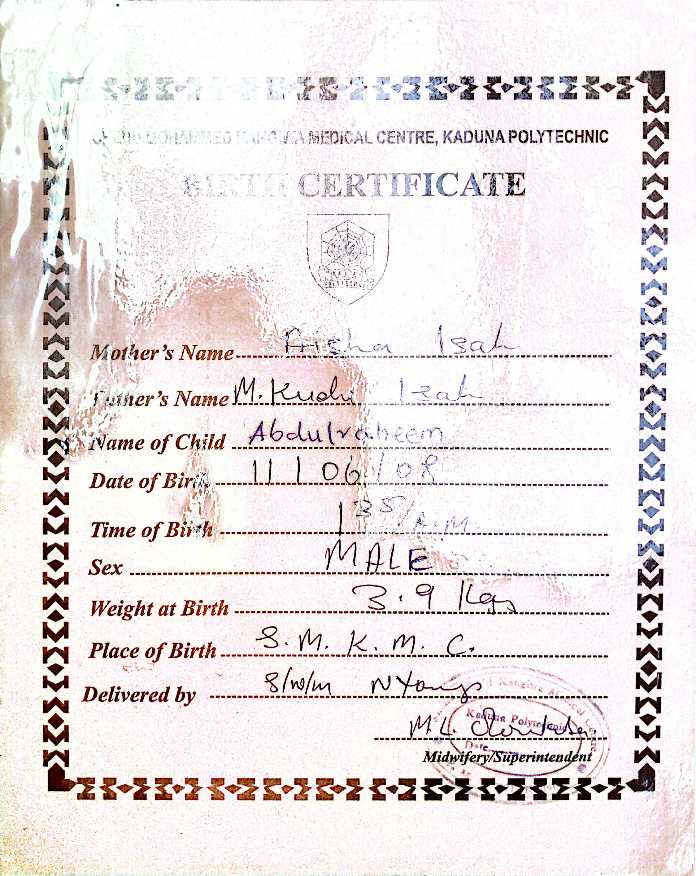 MOHAMMED KANGIWA MEDICAL CENTRE, KADUNA POLYTECHNIC
BIRTH CERTIFICATE
Mother's Name Aisha Isah
Father's Name M. Kudi Isah
Name of Child Abdulraheem
Date of Birth 11/06/08
Time of Birth 1 35/A.M.
Sex MALE
Weight at Birth 3.9 Kgs
Place of Birth S.M.K.M.C.
Delivered by S/N/M
M.L.
Kaduna Polytechnic
Date
Midwifery/Superintendent